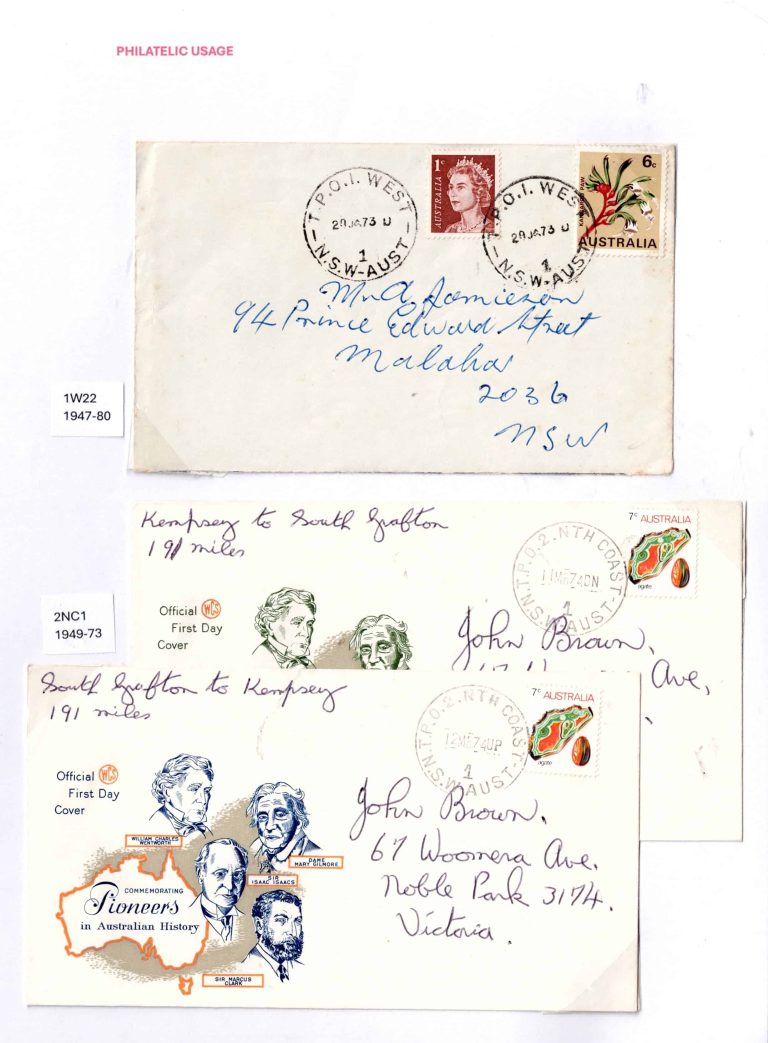 PHILATELIC USAGE
1c
AUSTRALIA
6c
KANGAROO PAW
AUSTRALIA
T.P.O.I. WEST
29JA73 U
1
N.S.W-AUST
T.P.O.I. WEST
29JA73 U
1
N.S.W-AUST
Mr A. Jamieson
94 Prince Edward Street
Malabar
2036
NSW
1W22
1947-80
Kempsey to South Grafton
191 miles
7c AUSTRALIA
agate
T.P.O.2. NTH COAST
11MR74DN
1
N.S.W AUST
Official WCS
First Day
Cover
John Brown,
Ave,
2NC1
1949-73
South Grafton to Kempsey
191 miles
7c AUSTRALIA
agate
T.P.O.2. NTH COAST
12MR74UP
1
N.S.W AUST
Official WCS
First Day
Cover
WILLIAM CHARLES
WENTWORTH
DAME
MARY GILMORE
SIR
ISAAC ISAACS
COMMEMORATING
Pioneers
in Australian History
SIR MARCUS
CLARK
John Brown,
67 Woomera Ave.
Noble Park 3174.
Victoria.